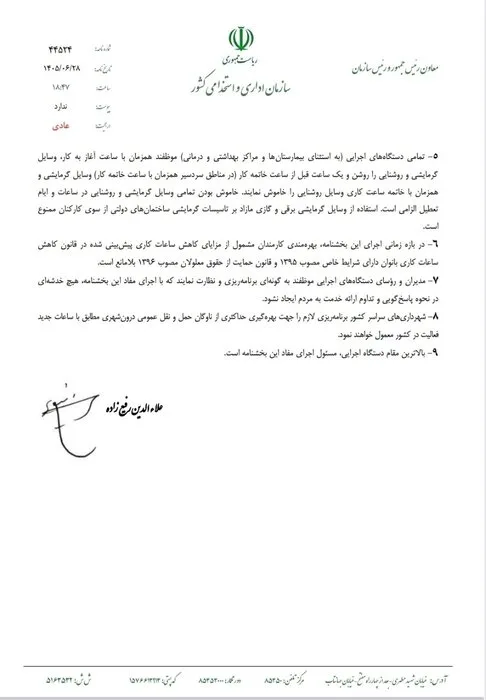 ریاست جمهوری
سازمان اداری و استخدامی کشور
معاون رئیس جمهور و رئیس سازمان
شماره نامه: ۴۴۵۲۴
تاریخ نامه: ۱۴۰۵/۰۶/۲۸
ساعت: ۱۸:۴۷
پیوست: ندارد
عادی
۵- تمامی دستگاه‌های اجرایی (به استثنای بیمارستان‌ها و مراکز بهداشتی و درمانی) موظفند همزمان با ساعت آغاز به کار، وسایل
گرمایشی و روشنایی را روشن و یک ساعت قبل از ساعت خاتمه کار (در مناطق سردسیر همزمان با ساعت خاتمه کار) وسایل گرمایشی و
همزمان با خاتمه ساعت کاری وسایل روشنایی را خاموش نمایند. خاموش بودن تمامی وسایل گرمایشی و روشنایی در ساعات و ایام
تعطیل الزامی است. استفاده از وسایل گرمایشی برقی و گازی مازاد بر تاسیسات گرمایشی ساختمان‌های دولتی از سوی کارکنان ممنوع
است.
۶- در بازه زمانی اجرای این بخشنامه، بهره‌مندی کارمندان مشمول از مزایای کاهش ساعات کاری پیش‌بینی شده در قانون کاهش
ساعات کاری بانوان دارای شرایط خاص مصوب ۱۳۹۵ و قانون حمایت از حقوق معلولان مصوب ۱۳۹۶ بلامانع است.
۷- مدیران و رؤسای دستگاه‌های اجرایی موظفند به گونه‌ای برنامه‌ریزی و نظارت نمایند که با اجرای مفاد این بخشنامه، هیچ خدشه‌ای
در نحوه پاسخ‌گویی و تداوم ارائه خدمت به مردم ایجاد نشود.
۸- شهرداری‌های سراسر کشور برنامه‌ریزی لازم را جهت بهره‌گیری حداکثری از ناوگان حمل و نقل عمومی درون‌شهری مطابق با ساعات جدید
فعالیت در کشور معمول خواهند نمود.
۹- بالاترین مقام دستگاه اجرایی، مسئول اجرای مفاد این بخشنامه است.
علاءالدین رفیع زاده
آدرس: خیابان شهید مطهری - بعد از چهارراه سهروردی - خیابان مهاتاب مرکز تلفن: ۸۵۳۵۰ دورنگار: ۸۵۳۵۲۰۰۰ کد پستی: ۱۵۷۶۶۱۳۲۱۳ ش ش: ۵۱۶۳۵۳۲